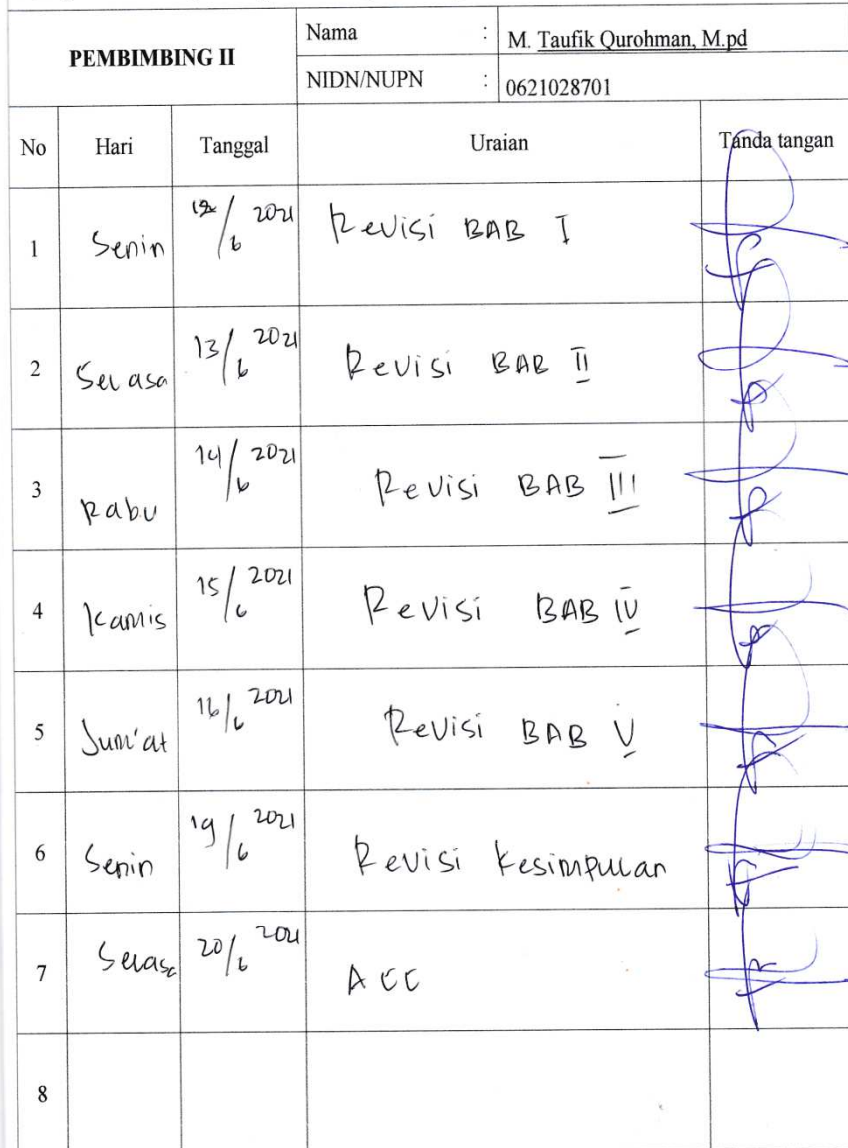 PEMBIMBING II
Nama : M. Taufik Qurohman, M.pd
NIDN/NUPN : 0621028701
No Hari Tanggal Uraian Tanda tangan
1 Senin 12/6 2021 Revisi BAB I
2 Selasa 13/6 2021 Revisi BAB II
3 Rabu 14/6 2021 Revisi BAB III
4 Kamis 15/6 2021 Revisi BAB IV
5 Jum'at 16/6 2021 Revisi BAB V
6 Senin 19/6 2021 Revisi Kesimpulan
7 Selasa 20/6 2021 ACC
8